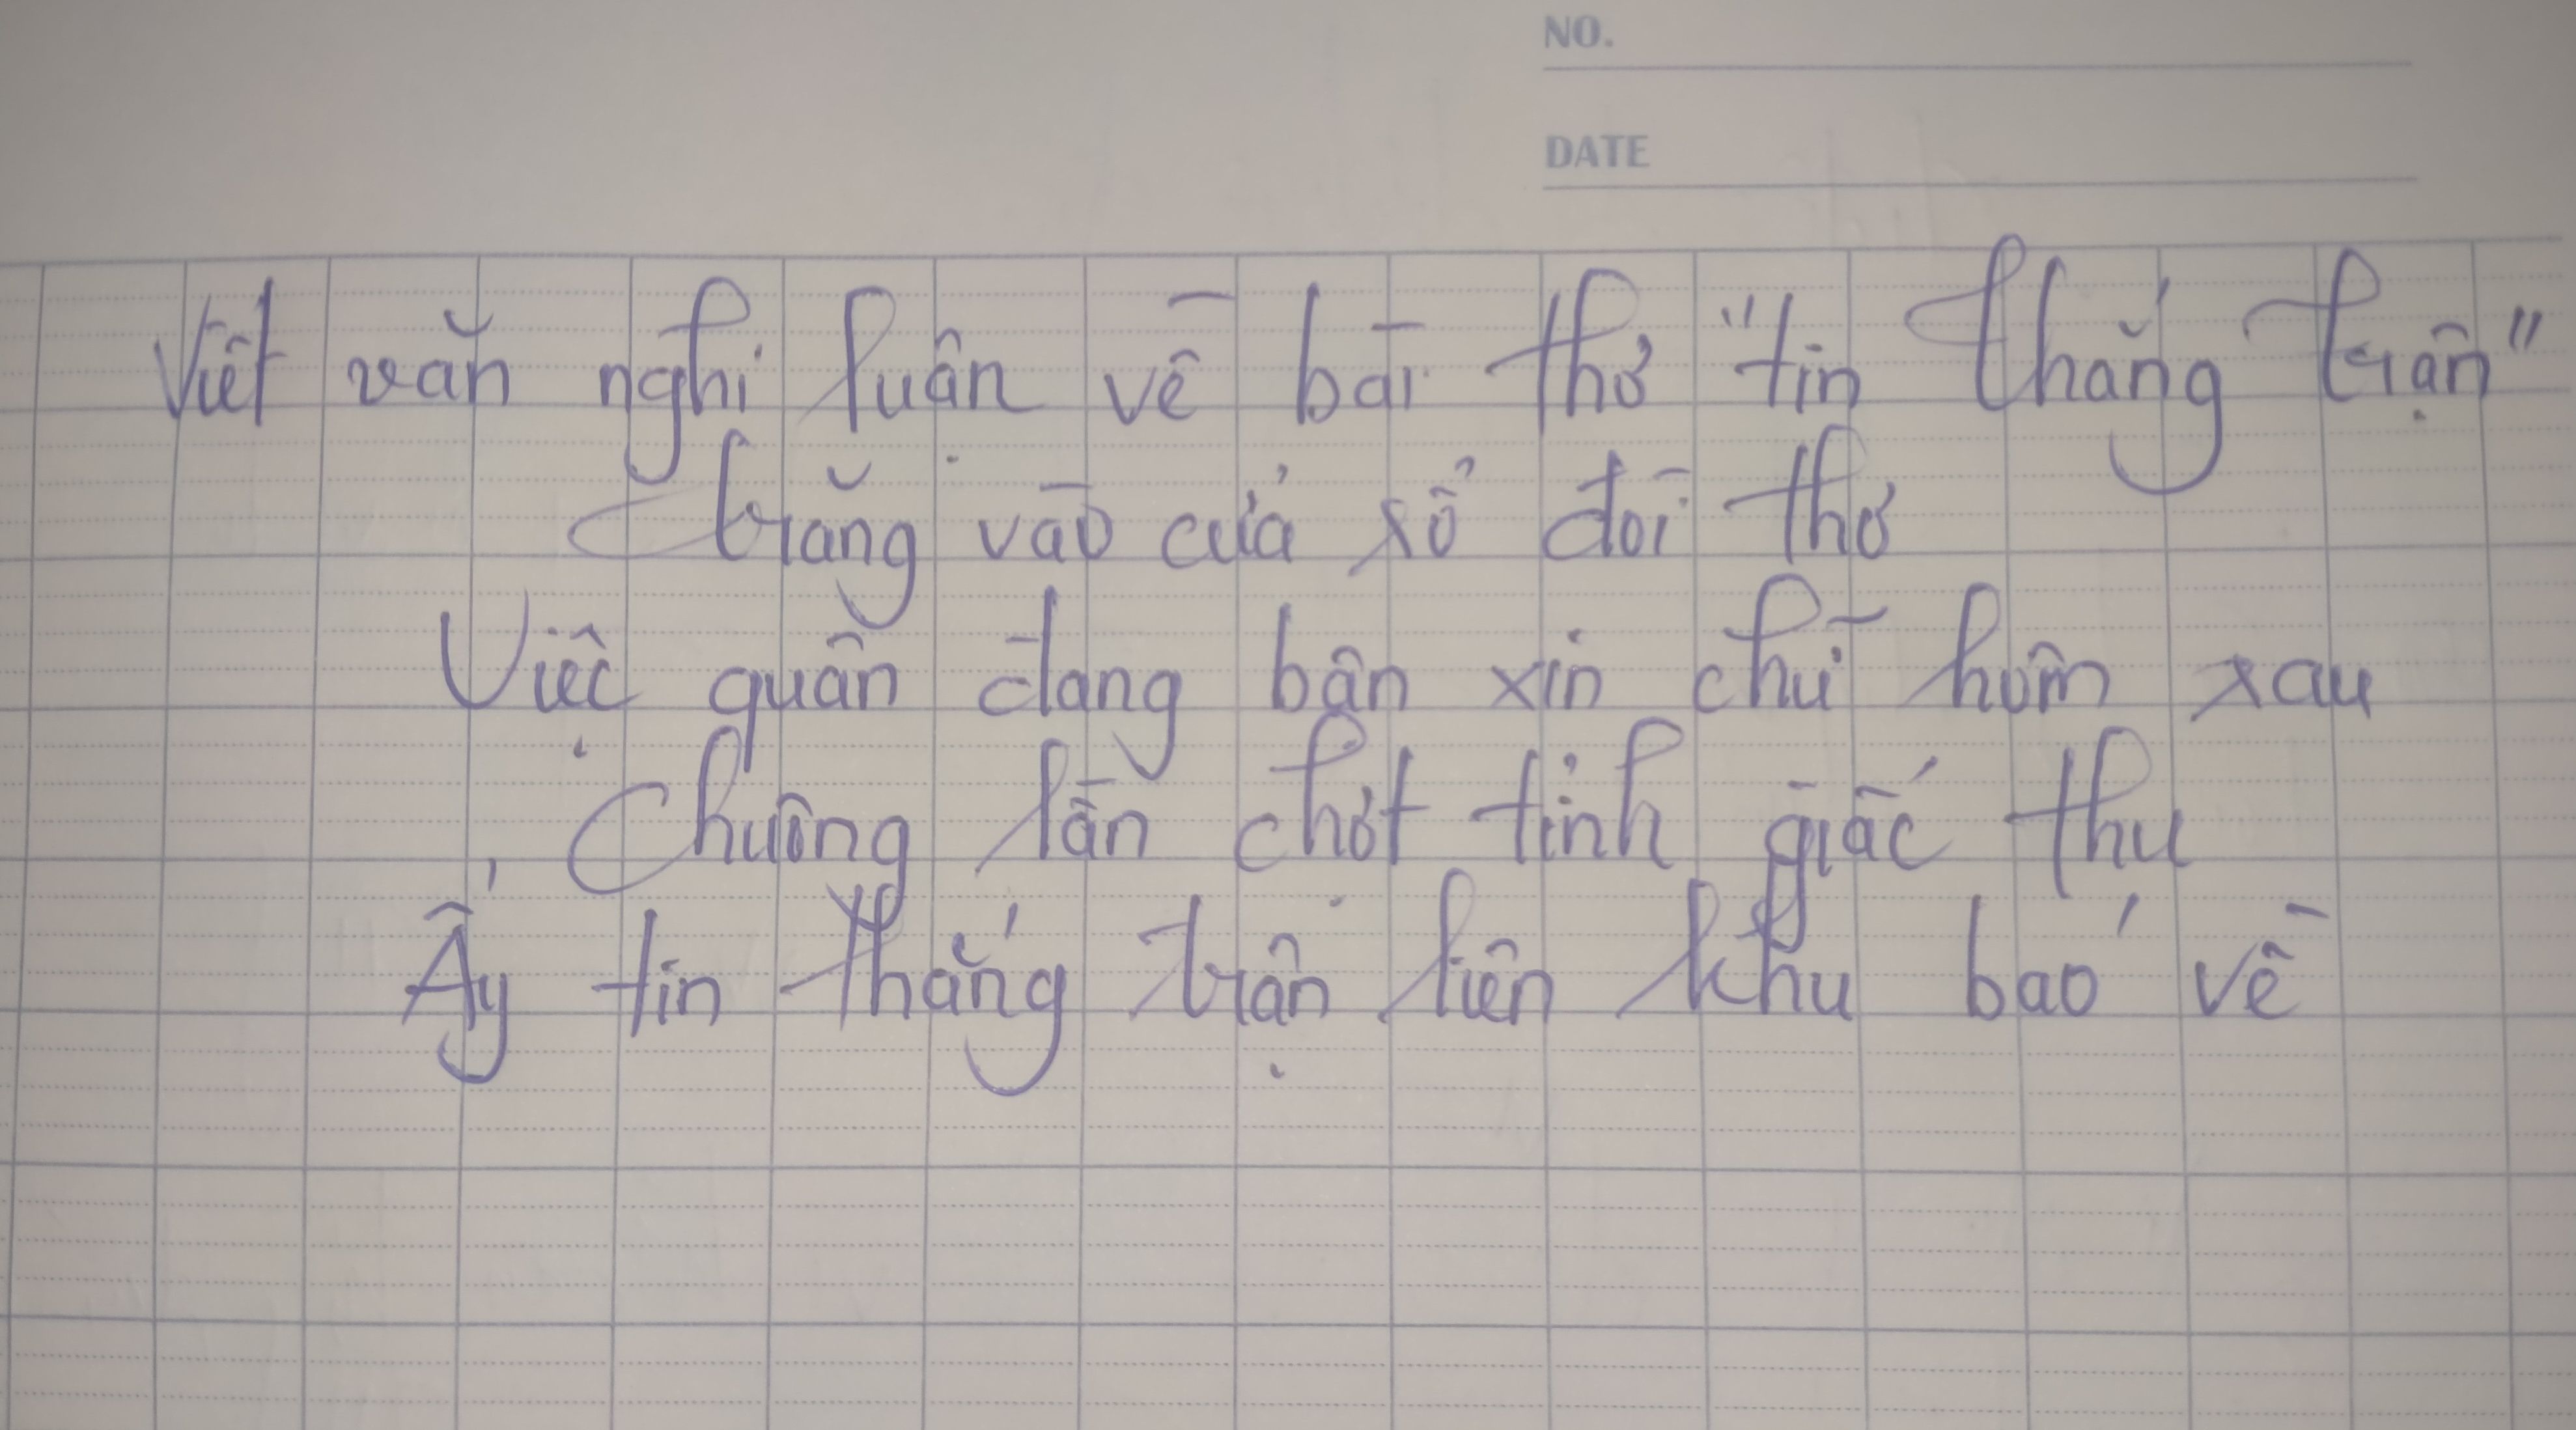 NO.
DATE
Viết văn nghị luận về bài thơ "tin thắng trận"
trăng vào cửa sổ đòi thơ
Việc quân đang bận xin chờ hôm xau
Chuông lần chợt tỉnh giấc thu
Ấy tin thắng trận liên khu báo về